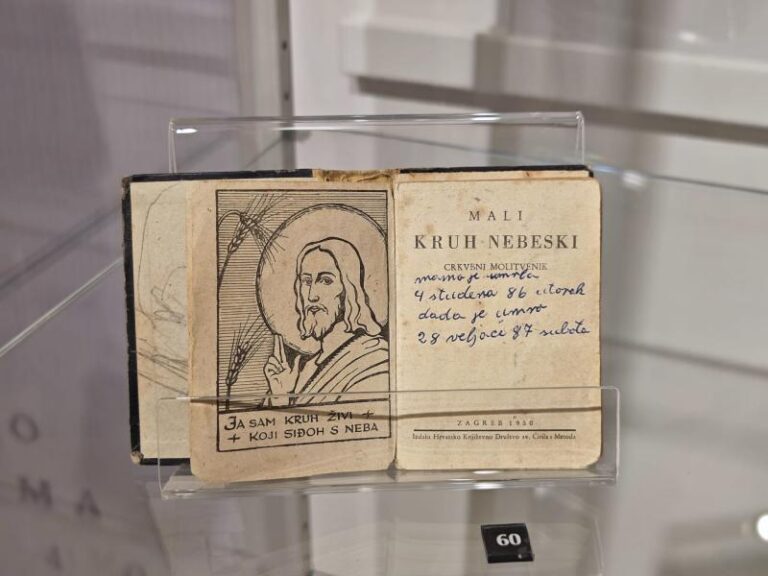 JA SAM KRUH ŽIVI +
+ KOJI SIĐOH S NEBA
MALI
KRUH NEBESKI
CRKVENI MOLITVENIK
mama je umrla
4 studena 86 utorek
dada je umro
28 veljače 87 subota
ZAGREB
Izdalo Hrvatsko Književno Društvo sv. Ćirila i Metoda
60
O
M A